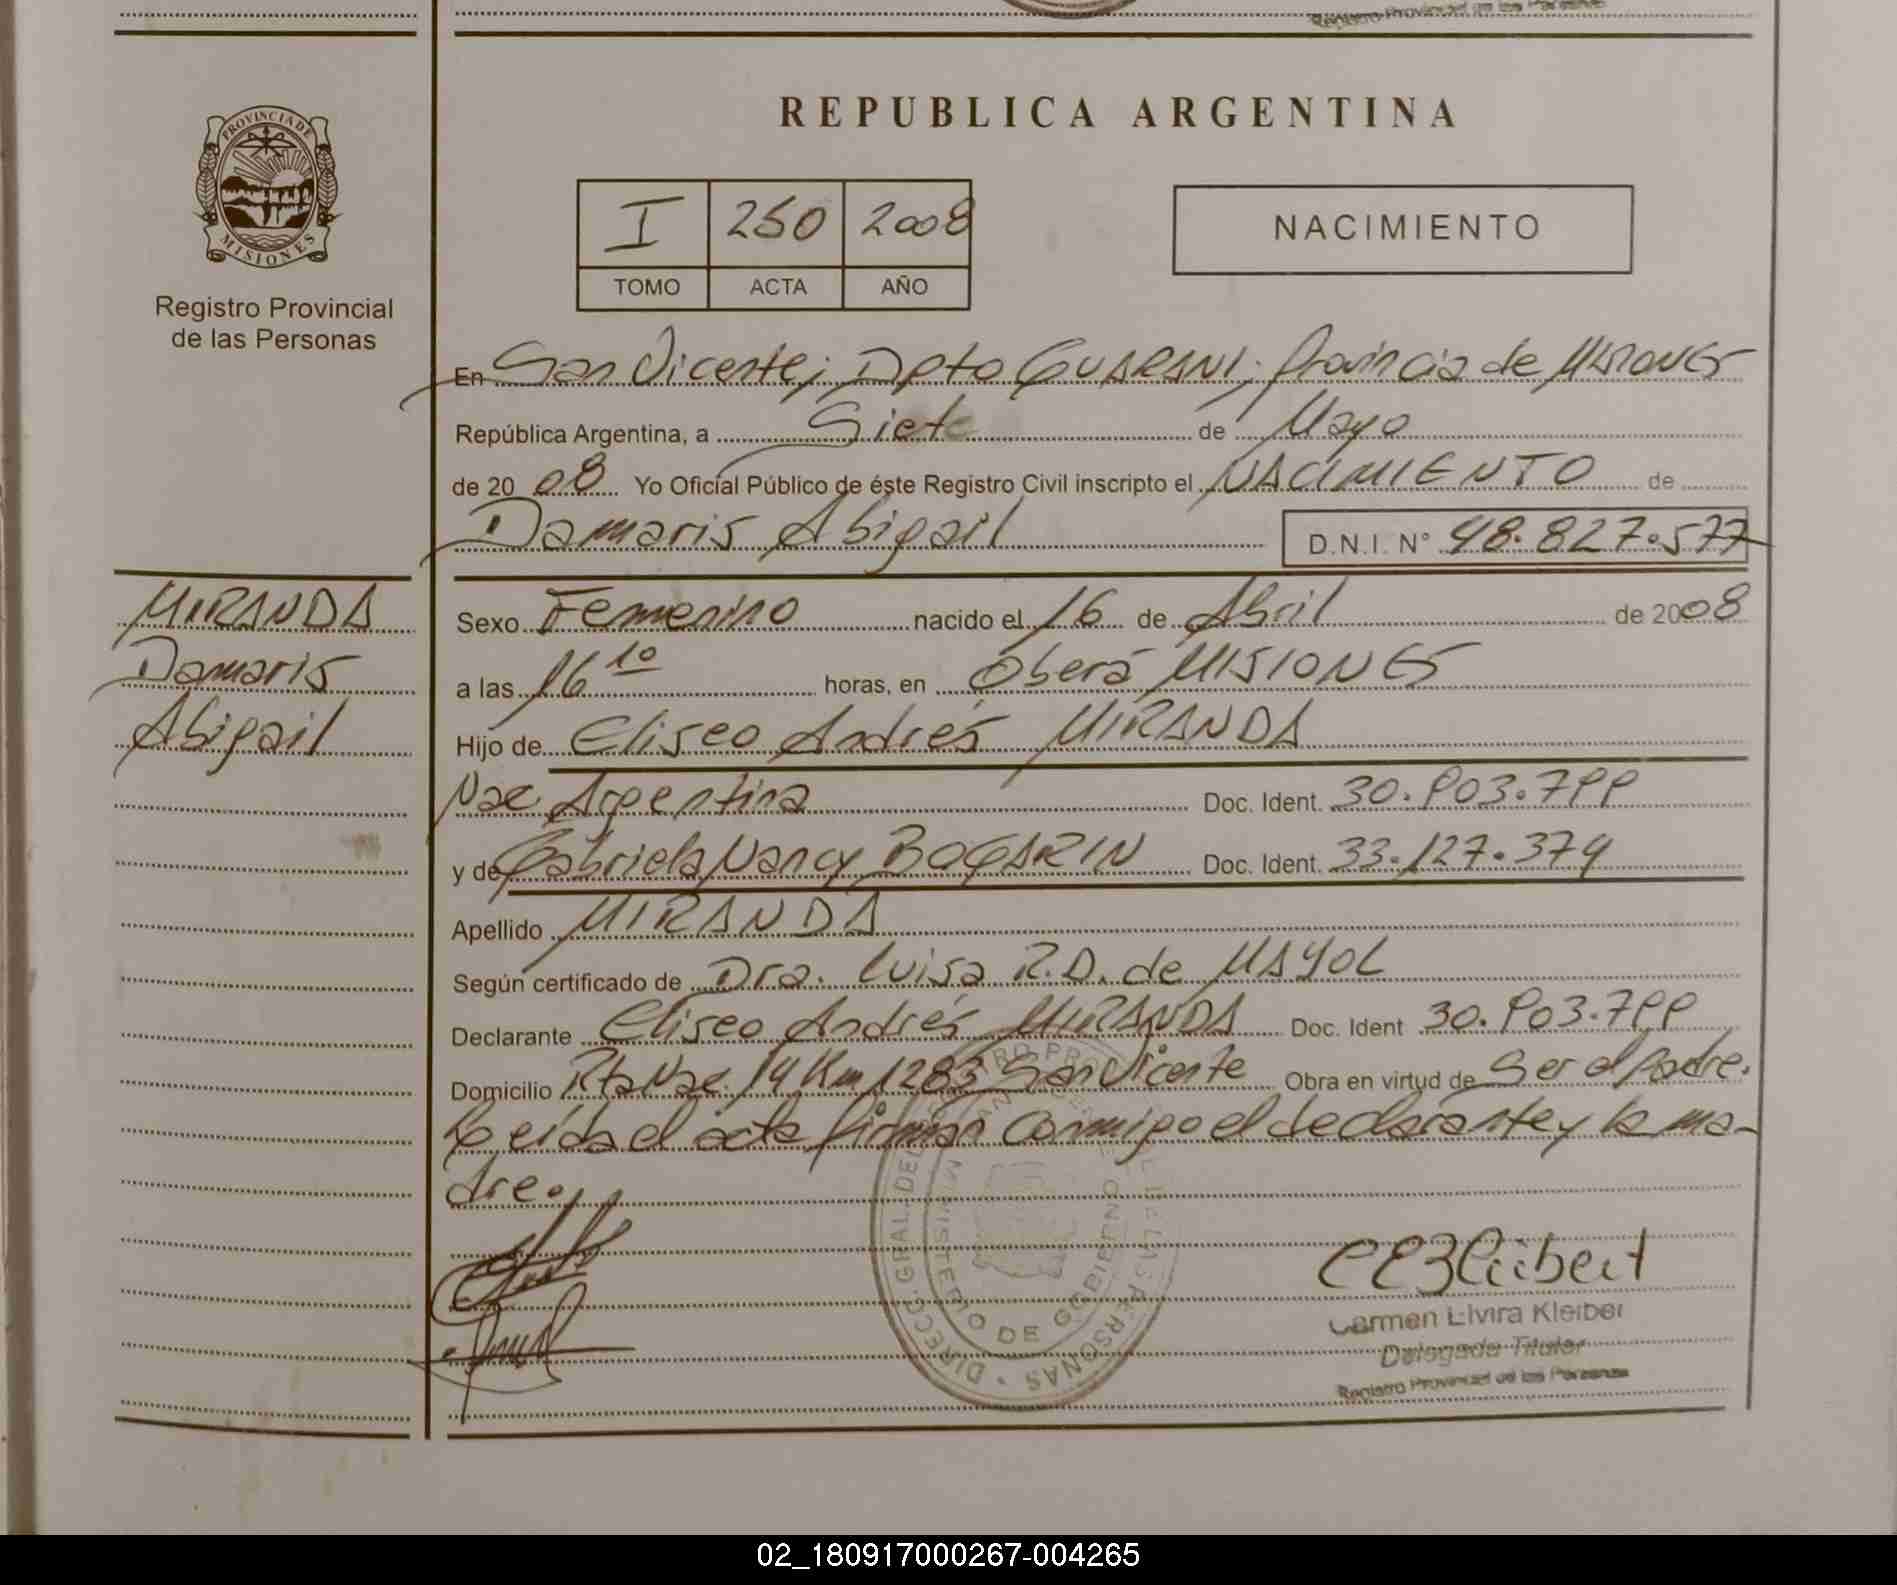 Registro Provincial de las Personas
PROVINCIA DE
MISIONES
Registro Provincial
de las Personas
REPUBLICA ARGENTINA
I 250 2008
TOMO ACTA AÑO
NACIMIENTO
En San Vicente; Dpto GUARANI; Provincia de MISIONES
República Argentina, a Siete de Mayo
de 2008 Yo Oficial Público de éste Registro Civil inscripto el NACIMIENTO de
Damaris Abigail D.N.I. N° 48.827.577
MIRANDA
Damaris
Abigail
Sexo Femenino nacido el 16 de Abril de 2008
a las 16 10 horas, en Oberá MISIONES
Hijo de Eliseo Andrés MIRANDA
Nac. Argentina Doc. Ident. 30.903.799
y de Gabriela Nancy BOGARIN Doc. Ident. 33.127.374
Apellido MIRANDA
Según certificado de Dra. Luisa R.D. de MAYOL
Declarante Eliseo Andrés MIRANDA Doc. Ident 30.903.799
Domicilio Rta Nac. 14 Km 1283 San Vicente Obra en virtud de Ser el padre.
Leída el acta firman conmigo el declarante y la ma-
dre.
DIRECC. GRAL. DEL REGISTRO PROVINCIAL DE LAS PERSONAS
MINISTERIO DE GOBIERNO
Carmen Elvira Kleiber
Delegada Titular
Registro Provincial de las Personas
02_180917000267-004265